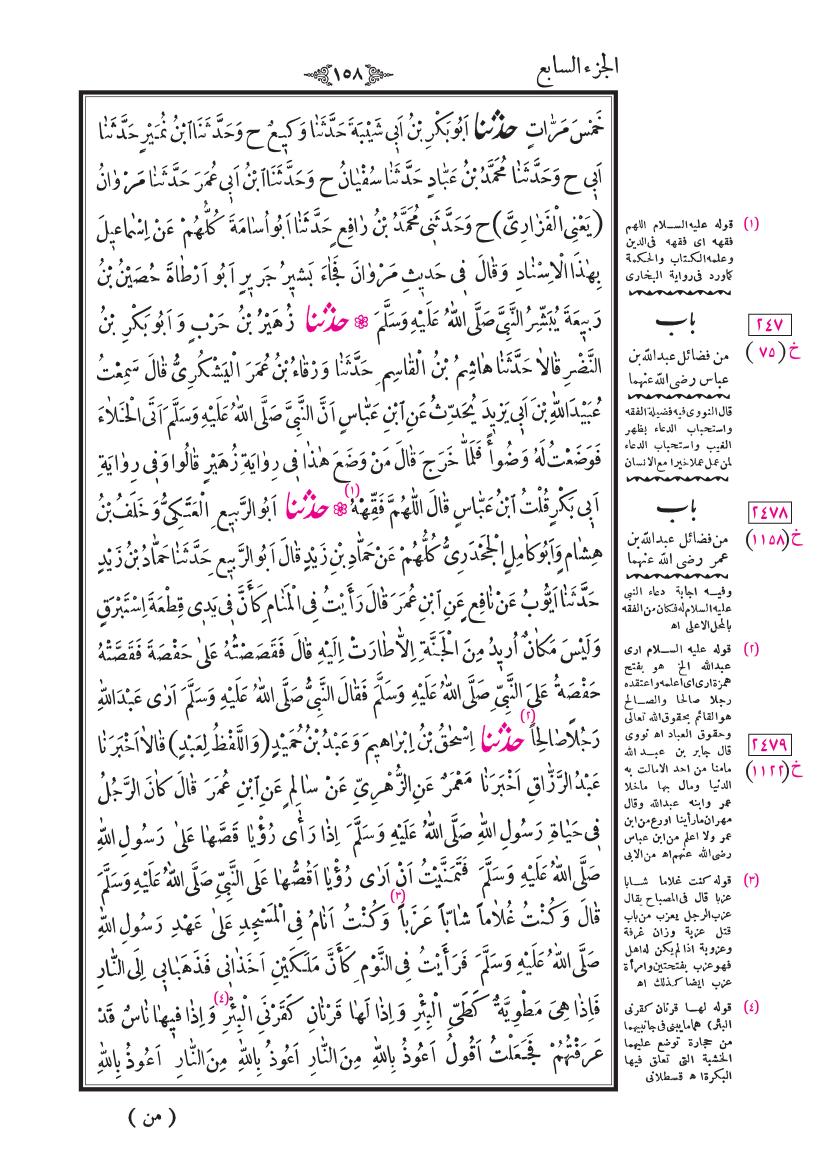 الجزء السابع
١٥٨
خَمْسَ مَرَّاتٍ حدثنا اَبُو بَكْرِ بْنُ اَبِي شَيْبَةَ حَدَّثَنَا وَكِيعٌ ح وَحَدَّثَنَا ابْنُ نُمَيْرٍ حَدَّثَنَا
اَبِي ح وَحَدَّثَنَا مُحَمَّدُ بْنُ عَبَّادٍ حَدَّثَنَا سُفْيَانُ ح وَحَدَّثَنَا ابْنُ اَبِي عُمَرَ حَدَّثَنَا مَرْوَانُ
(يَعْنِي الْفَزَارِيَّ) ح وَحَدَّثَنِي مُحَمَّدُ بْنُ رَافِعٍ حَدَّثَنَا اَبُو اُسَامَةَ كُلُّهُمْ عَنْ اِسْمَاعِيلَ
بِهٰذَا الْاِسْنَادِ وَقَالَ فِي حَدِيثِ مَرْوَانَ فَجَاءَ بَشِيرُ جَرِيرٍ اَبُو اَرْطَاةَ حُصَيْنُ بْنُ
رَبِيعَةَ يُبَشِّرُ النَّبِيَّ صَلَّى اللهُ عَلَيْهِ وَسَلَّمَ ❁ حدثنا زُهَيْرُ بْنُ حَرْبٍ وَ اَبُو بَكْرِ بْنُ
النَّضْرِ قَالَا حَدَّثَنَا هَاشِمُ بْنُ الْقَاسِمِ حَدَّثَنَا وَرْقَاءُ بْنُ عُمَرَ الْيَشْكُرِيُّ قَالَ سَمِعْتُ
عُبَيْدَ اللهِ بْنَ اَبِي يَزِيدَ يُحَدِّثُ عَنِ ابْنِ عَبَّاسٍ اَنَّ النَّبِيَّ صَلَّى اللهُ عَلَيْهِ وَسَلَّمَ اَتَى الْخَلَاءَ
فَوَضَعْتُ لَهُ وَضُوأً فَلَمَّا خَرَجَ قَالَ مَنْ وَضَعَ هٰذَا فِي رِوَايَةِ زُهَيْرٍ قَالُوا وَفِي رِوَايَةِ
اَبِي بَكْرٍ قُلْتُ ابْنُ عَبَّاسٍ قَالَ اللّٰهُمَّ فَقِّهْهُ (١) ❁ حدثنا اَبُو الرَّبِيعِ الْعَتَكِيُّ وَ خَلَفُ بْنُ
هِشَامٍ وَ اَبُو كَامِلٍ الْجَحْدَرِيُّ كُلُّهُمْ عَنْ حَمَّادِ بْنِ زَيْدٍ قَالَ اَبُو الرَّبِيعِ حَدَّثَنَا حَمَّادُ بْنُ زَيْدٍ
حَدَّثَنَا اَيُّوبُ عَنْ نَافِعٍ عَنِ ابْنِ عُمَرَ قَالَ رَأَيْتُ فِي الْمَنَامِ كَأَنَّ فِي يَدِي قِطْعَةَ اِسْتَبْرَقٍ
وَلَيْسَ مَكَانٌ اُرِيدُ مِنَ الْجَنَّةِ اِلَّا طَارَتْ اِلَيْهِ قَالَ فَقَصَصْتُهُ عَلَى حَفْصَةَ فَقَصَّتْهُ
حَفْصَةُ عَلَى النَّبِيِّ صَلَّى اللهُ عَلَيْهِ وَسَلَّمَ فَقَالَ النَّبِيُّ صَلَّى اللهُ عَلَيْهِ وَسَلَّمَ اَرٰى عَبْدَ اللهِ
رَجُلاً صَالِحاً (٢) حدثنا اِسْحٰقُ بْنُ اِبْرَاهِيمَ وَ عَبْدُ بْنُ حُمَيْدٍ (وَاللَّفْظُ لِعَبْدٍ) قَالَا اَخْبَرَنَا
عَبْدُ الرَّزَّاقِ اَخْبَرَنَا مَعْمَرٌ عَنِ الزُّهْرِيِّ عَنْ سَالِمٍ عَنِ ابْنِ عُمَرَ قَالَ كَانَ الرَّجُلُ
فِي حَيَاةِ رَسُولِ اللهِ صَلَّى اللهُ عَلَيْهِ وَسَلَّمَ اِذَا رَأٰى رُؤْيَا قَصَّهَا عَلٰى رَسُولِ اللهِ
صَلَّى اللهُ عَلَيْهِ وَسَلَّمَ فَتَمَنَّيْتُ اَنْ اَرٰى رُؤْيَا اَقُصُّهَا عَلَى النَّبِيِّ صَلَّى اللهُ عَلَيْهِ وَسَلَّمَ
قَالَ وَ كُنْتُ غُلَاماً شَابّاً عَزَباً (٣) وَ كُنْتُ اَنَامُ فِي الْمَسْجِدِ عَلٰى عَهْدِ رَسُولِ اللهِ
صَلَّى اللهُ عَلَيْهِ وَسَلَّمَ فَرَأَيْتُ فِي النَّوْمِ كَأَنَّ مَلَكَيْنِ اَخَذَانِي فَذَهَبَا بِي اِلَى النَّارِ
فَاِذَا هِيَ مَطْوِيَّةٌ كَطَيِّ الْبِئْرِ وَ اِذَا لَهَا قَرْنَانِ كَقَرْنَيِ الْبِئْرِ (٤) وَ اِذَا فِيهَا نَاسٌ قَدْ
عَرَفْتُهُمْ فَجَعَلْتُ اَقُولُ اَعُوذُ بِاللهِ مِنَ النَّارِ اَعُوذُ بِاللهِ مِنَ النَّارِ اَعُوذُ بِاللهِ
( من )
(١) قوله عليه السلام اللهم
فقهه اى فقهه فى الدين
وعلمه الكتاب والحكمة
كماورد فى رواية البخارى
باب
٢٤٧
خ (٧٥)
من فضائل عبدالله بن
عباس رضى الله عنهما
قال النووى فيه فضيلة الفقه
واستحباب الدعاء بظهر
الغيب واستحباب الدعاء
لمن عمل عملا خيرا مع الانسان
باب
٢٤٧٨
خ (١١٥٨)
من فضائل عبدالله بن
عمر رضى الله عنهما
وفيه اجابة دعاء النبى
عليه السلام له فكان من الفقه
بالمحل الاعلى اه
(٢) قوله عليه السلام ارى
عبدالله الخ هو بفتح
همزة ارى اى اعلمه واعتقده
رجلا صالحا والصالح
هو القائم بحقوق الله تعالى
وحقوق العباد اه نووى
٢٤٧٩
خ (١١٢٢)
قال جابر بن عبدالله
مامنا من احد الا مالت به
الدنيا ومال بها ماخلا
عمر وابنه عبدالله وقال
مهران مارأينا اورع من ابن
عمر ولا اعلم من ابن عباس
رضى الله عنهم اه من الابى
(٣) قوله كنت غلاما شابا
عزبا قال فى المصباح يقال
عزب الرجل يعزب من باب
قتل عزبة وزان غرفة
وعزوبة اذا لم يكن له اهل
فهو عزب بفتحتين وامرأة
عزب ايضا كذلك اه
(٤) قوله لها قرنان كقرنى
البئر) هما مايبنى فى جانبيهما
من حجارة توضع عليهما
الخشبة التى تعلق فيها
البكرة اه قسطلانى